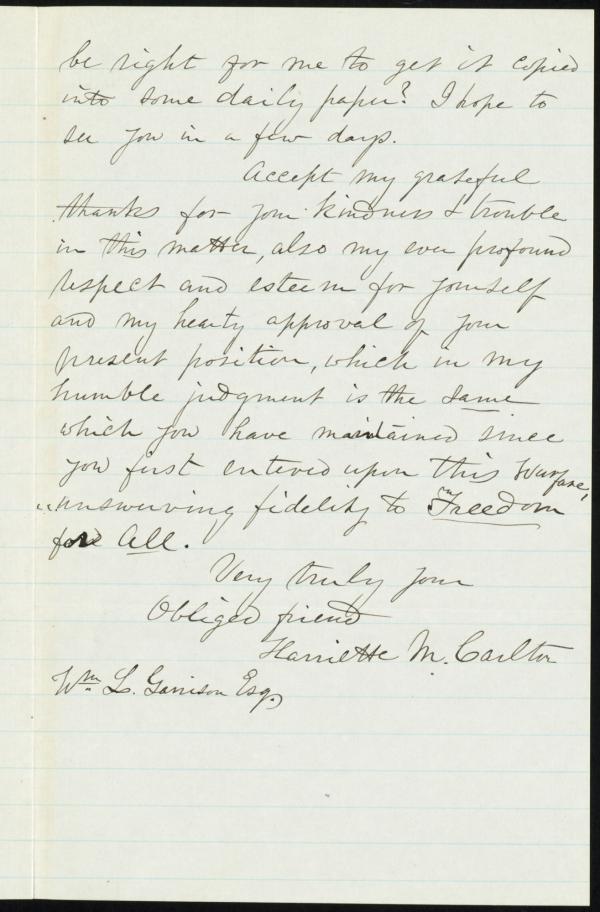 be right for me to get it copied
into some daily paper? I hope to
see you in a few days.
Accept my grateful
thanks for your kindness & trouble
in this matter, also my ever profound
respect and esteem for yourself
and my hearty approval of your
present position, which in my
humble judgment is the same
which you have maintained since
you first entered upon this warfare,
"unswerving fidelity to Freedom
for All.
Very truly your
Obliged friend
Harriette M. Carlton
Wm L. Garrison Esq.